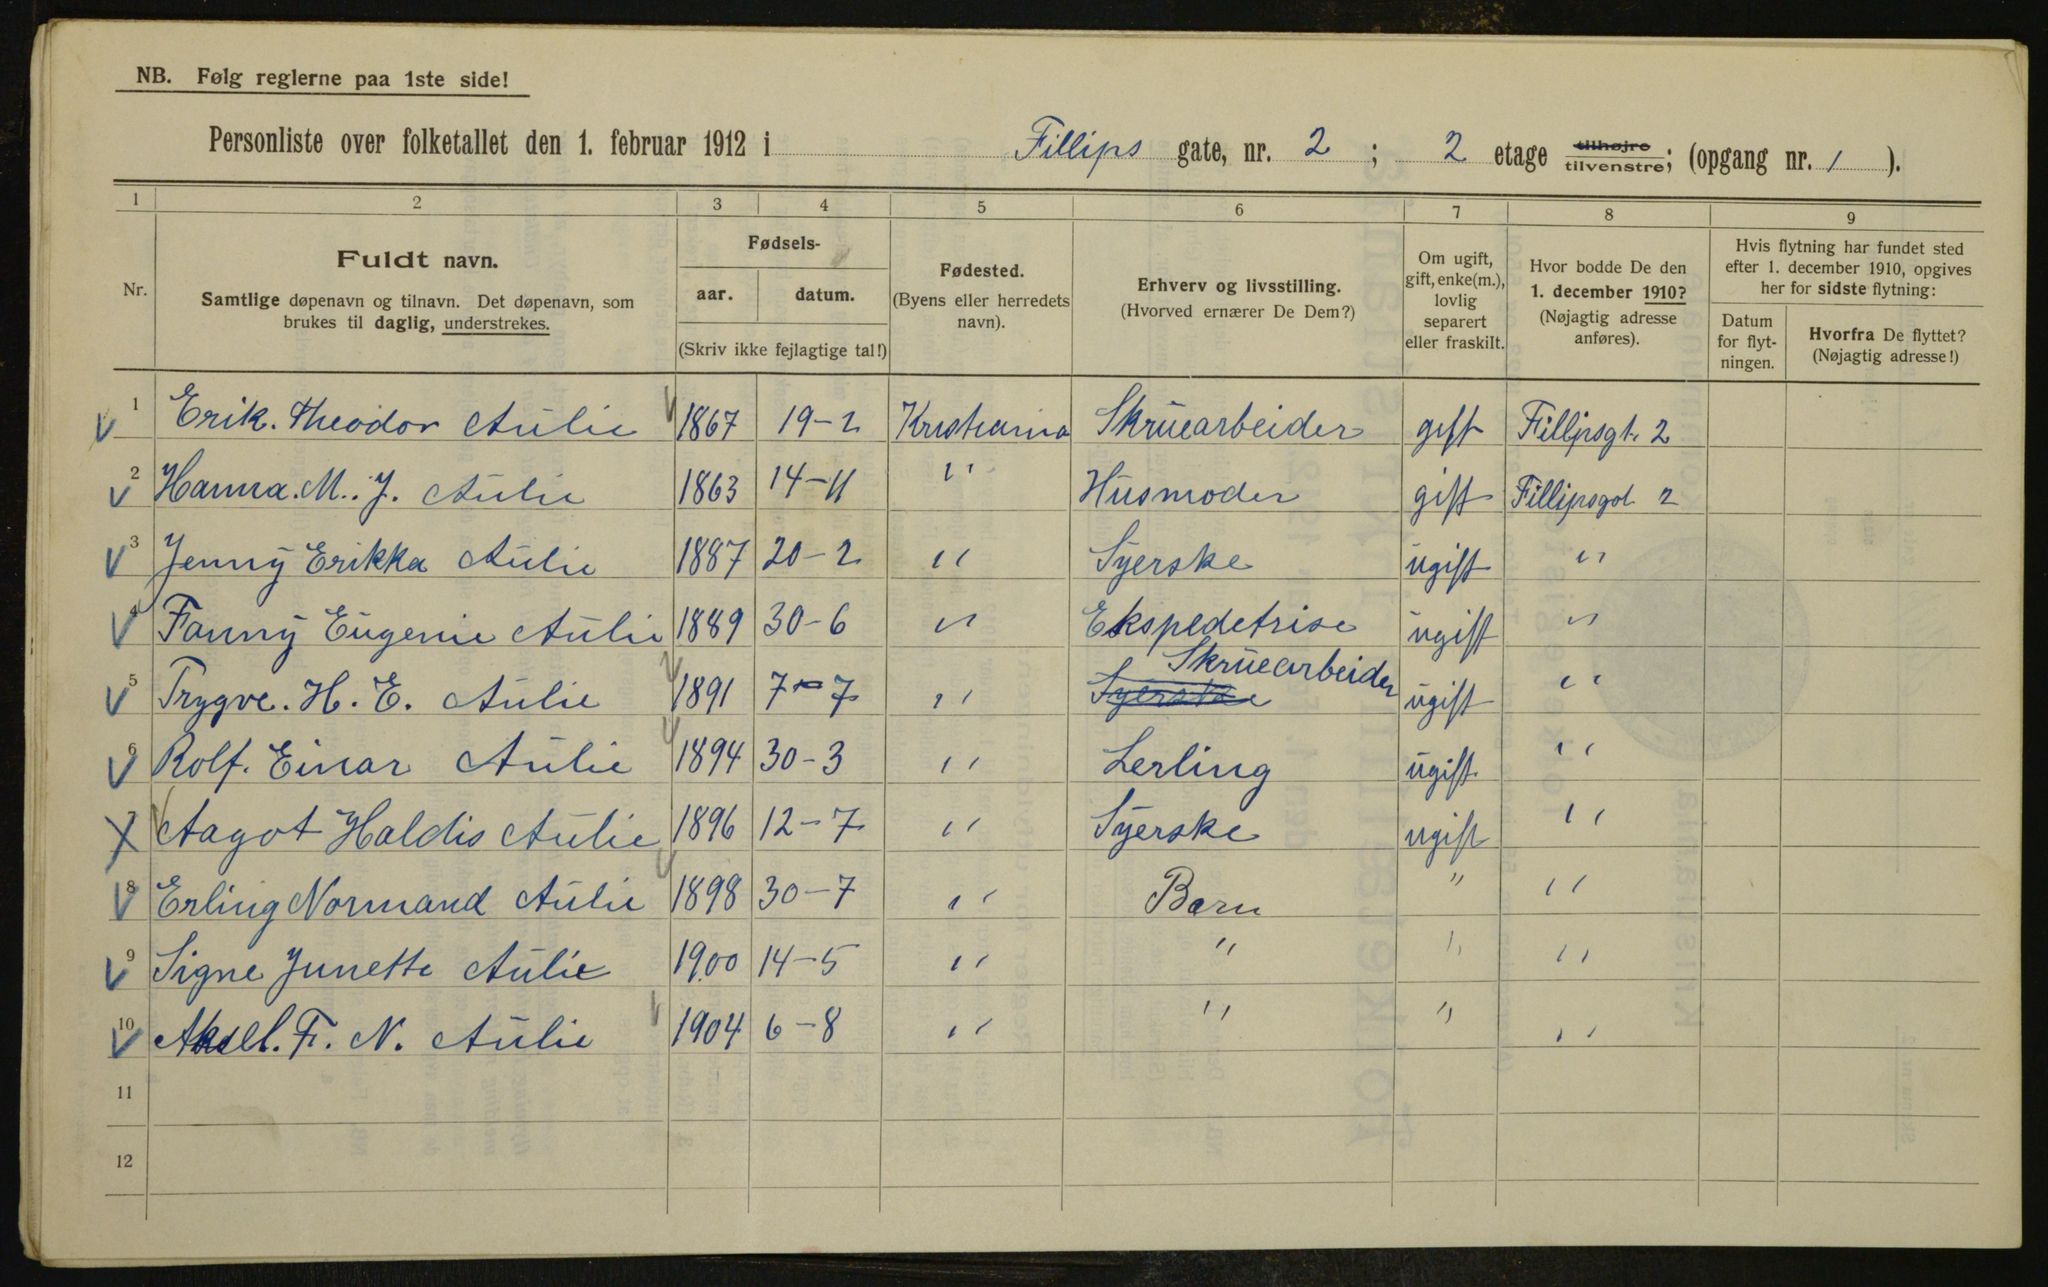 NB. Følg reglerne paa 1ste side!
Personliste over folketallet den 1. februar 1912 i Fillips gate, nr. 2 ; 2 etage tilhøjre tilvenstre; (opgang nr. 1 ).
1 2 3 4 5 6 7 8 9
Nr.
Fuldt navn.
Samtlige døpenavn og tilnavn. Det døpenavn, som
brukes til daglig, understrekes.
Fødsels-
aar. datum.
(Skriv ikke fejlagtige tal!)
Fødested.
(Byens eller herredets
navn).
Erhverv og livsstilling.
(Hvorved ernærer De Dem?)
Om ugift,
gift, enke(m.),
lovlig
separert
eller fraskilt.
Hvor bodde De den
1. december 1910?
(Nøjagtig adresse
anføres).
Hvis flytning har fundet sted
efter 1. december 1910, opgives
her for sidste flytning:
Datum
for flyt-
ningen.
Hvorfra De flyttet?
(Nøjagtig adresse!)
1 Erik. Theodor Aulie 1867 19-2 Kristiania Skruearbeider gift Fillipsgt. 2
2 Hanna. M. J. Aulie 1863 14-11 " Husmoder gift Fillipsgt 2
3 Jenny Erikka Aulie 1887 20-2 " Syerske ugift "
4 Fanny Eugenie Aulie 1889 30-6 " Ekspedetrise ugift "
5 Trygve. H. E. Aulie 1891 7-7 " Syerske Skruearbeider ugift "
6 Rolf. Einar Aulie 1894 30-3 " Lerling ugift. "
7 Aagot Haldis Aulie 1896 12-7 " Syerske ugift "
8 Erling Normand Aulie 1898 30-7 " Barn " "
9 Signe Junette Aulie 1900 14-5 " " " "
10 Aksel. F. N. Aulie 1904 6-8 " " " "
11
12